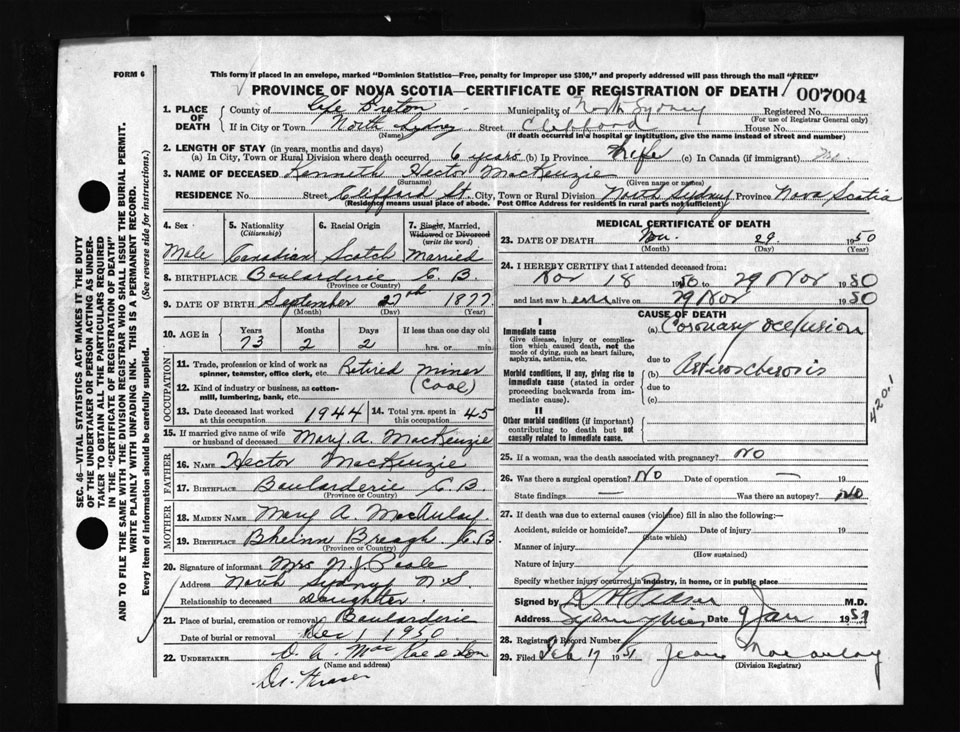 FORM 6
This form if placed in an envelope, marked "Dominion Statistics—Free, penalty for improper use $300," and properly addressed will pass through the mail "FREE"
PROVINCE OF NOVA SCOTIA—CERTIFICATE OF REGISTRATION OF DEATH
007004
1. PLACE OF DEATH
County of Cape Breton Municipality of North Sydney Registered No.
(For use of Registrar General only)
If in City or Town North Sydney Street Clifford House No.
(Name) (If death occurred in a hospital or institution, give its name instead of street and number)
2. LENGTH OF STAY (in years, months and days)
(a) In City, Town or Rural Division where death occurred 6 years (b) In Province Life (c) In Canada (if immigrant)
3. NAME OF DECEASED Kenneth Hector MacKenzie
(Surname) (Given name or names)
RESIDENCE No. Street Clifford St. City, Town or Rural Division North Sydney Province Nova Scotia
(Residence means usual place of abode. Post Office Address for residents in rural parts not sufficient)
4. Sex 5. Nationality (Citizenship) 6. Racial Origin 7. Single, Married, Widowed or Divorced (write the word)
Male Canadian Scotch Married
8. BIRTHPLACE Boularderie C.B.
(Province or Country)
9. DATE OF BIRTH September 27th 1877
(Month) (Day) (Year)
10. AGE in Years Months Days If less than one day old
73 2 2 hrs. or min.
OCCUPATION
11. Trade, profession or kind of work as spinner, teamster, office clerk, etc. Retired Miner
12. Kind of industry or business, as cotton-mill, lumbering, bank, etc. (Coal)
13. Date deceased last worked at this occupation 1944 14. Total yrs. spent in this occupation 45
15. If married give name of wife or husband of deceased Mary A. MacKenzie
FATHER
16. NAME Hector MacKenzie
17. BIRTHPLACE Boularderie C.B.
(Province or Country)
MOTHER
18. MAIDEN NAME Mary A. MacAulay
19. BIRTHPLACE Bheinn Breagh C.B.
(Province or Country)
20. Signature of informant Mrs N.J. Poole
Address North Sydney N.S.
Relationship to deceased Daughter
21. Place of burial, cremation or removal Boularderie
Date of burial or removal Dec 1 1950
22. UNDERTAKER
(Name and address)
Dr. Fraser
MEDICAL CERTIFICATE OF DEATH
23. DATE OF DEATH Nov. 29 1950
(Month) (Day)
24. I HEREBY CERTIFY that I attended deceased from:
Nov 18 1950 to 29 Nov 1950
and last saw h alive on 29 Nov 1950
CAUSE OF DEATH
I
Immediate cause (a) Coronary occlusion
Give disease, injury or complication which caused death, not the mode of dying, such as heart failure, asphyxia, asthenia, etc.
due to
Morbid conditions, if any, giving rise to immediate cause (stated in order proceeding backwards from immediate cause).
(b) Arteriosclerosis
due to
(c)
420.1
II
Other morbid conditions (if important) contributing to death but not causally related to immediate cause.
25. If a woman, was the death associated with pregnancy? NO
26. Was there a surgical operation? NO Date of operation — 19
State findings — Was there an autopsy? NO
27. If death was due to external causes (violence) fill in also the following:—
Accident, suicide or homicide? Date of injury 19
(State which)
Manner of injury
(How sustained)
Nature of injury
Specify whether injury occurred in industry, in home, or in public place
Signed by M.D.
Address Date 9 Jan 1951
28. Registrar's Record Number
29. Filed Feb 17 1951 Jean MacAulay
(Division Registrar)
SEC. 46—VITAL STATISTICS ACT MAKES IT THE DUTY
OF THE UNDERTAKER OR PERSON ACTING AS UNDERTAKER TO OBTAIN ALL THE PARTICULARS REQUIRED
IN THE "CERTIFICATE OF REGISTRATION OF DEATH"
AND TO FILE THE SAME WITH THE DIVISION REGISTRAR WHO SHALL ISSUE THE BURIAL PERMIT.
WRITE PLAINLY WITH UNFADING INK. THIS IS A PERMANENT RECORD.
Every item of information should be carefully supplied. (See reverse side for instructions.)